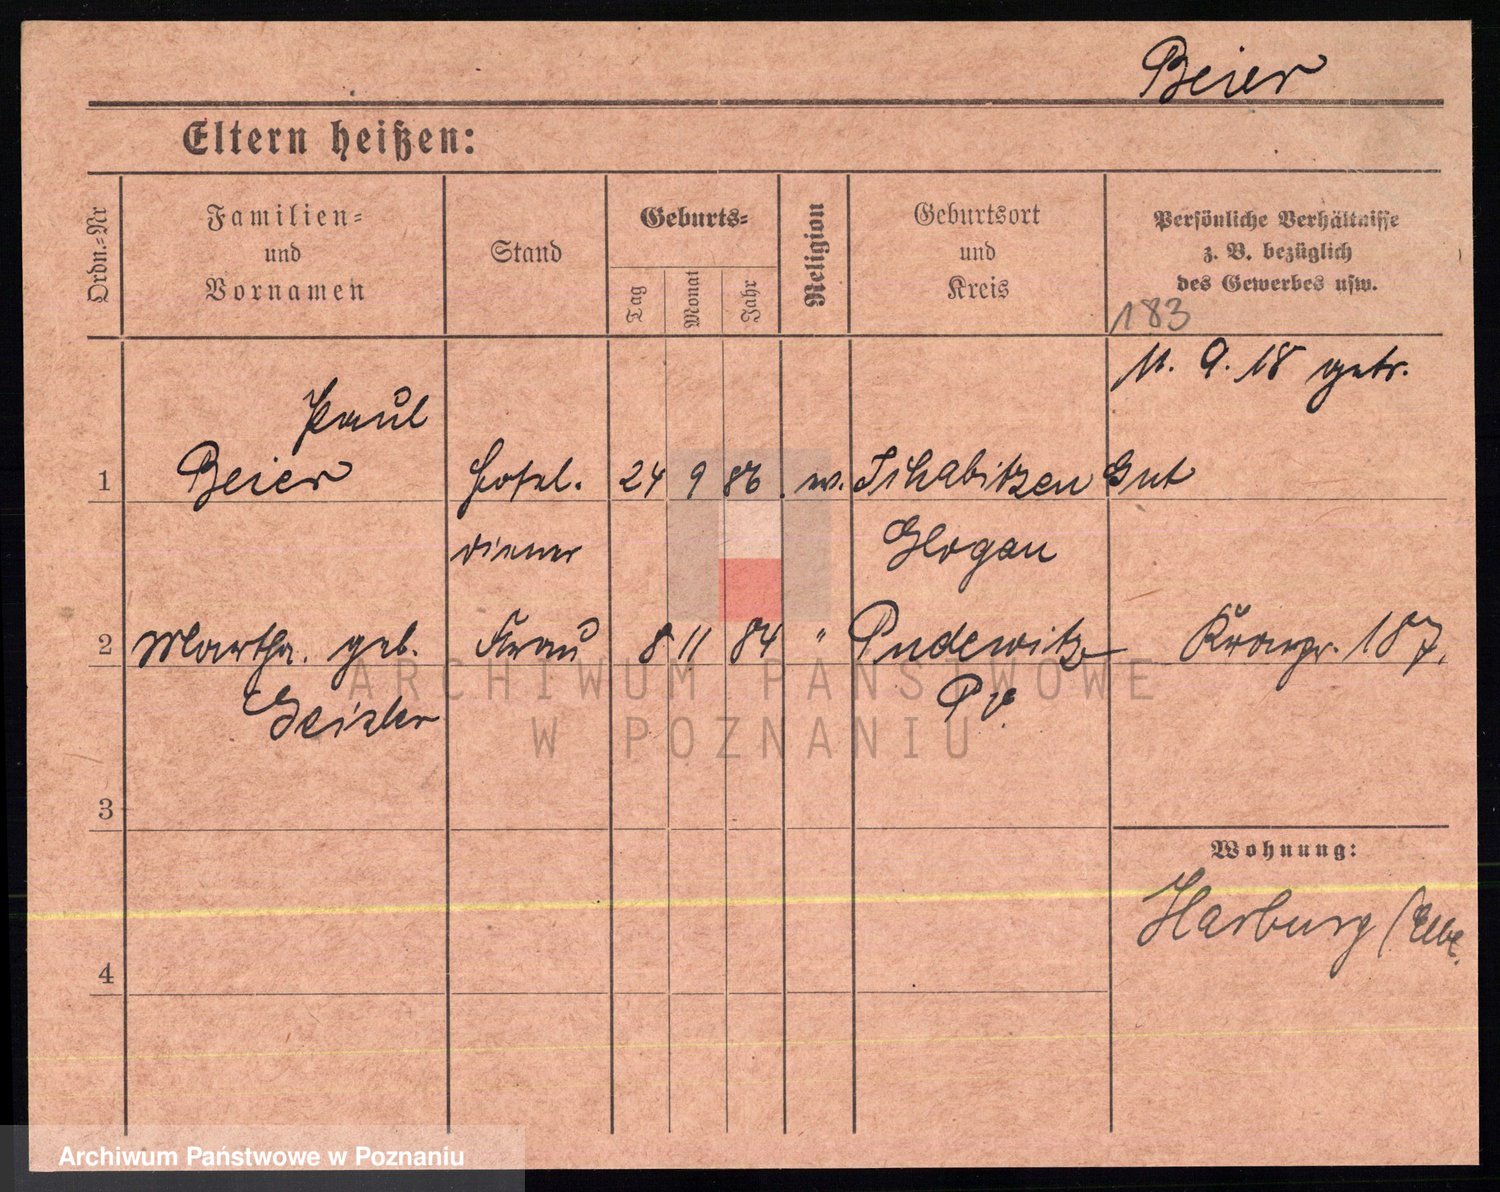 Beier
Eltern heißen:
Ordn.-Nr
Familien-
und
Vornamen
Stand
Geburts-
Tag
Monat
Jahr
Religion
Geburtsort
und
Kreis
Persönliche Verhältnisse
z. B. bezüglich
des Gewerbes usw.
183
11. 9. 18 getr.
Paul
1 Beier Hotel. 24 9 86 Gut
diener Glogau
2 Martha. geb. Frau 8 11 84 " Pudewitz 187.
3
Wohnung:
Harburg/Elbe.
4
ARCHIWUM PAŃSTWOWE
W POZNANIU
Archiwum Państwowe w Poznaniu